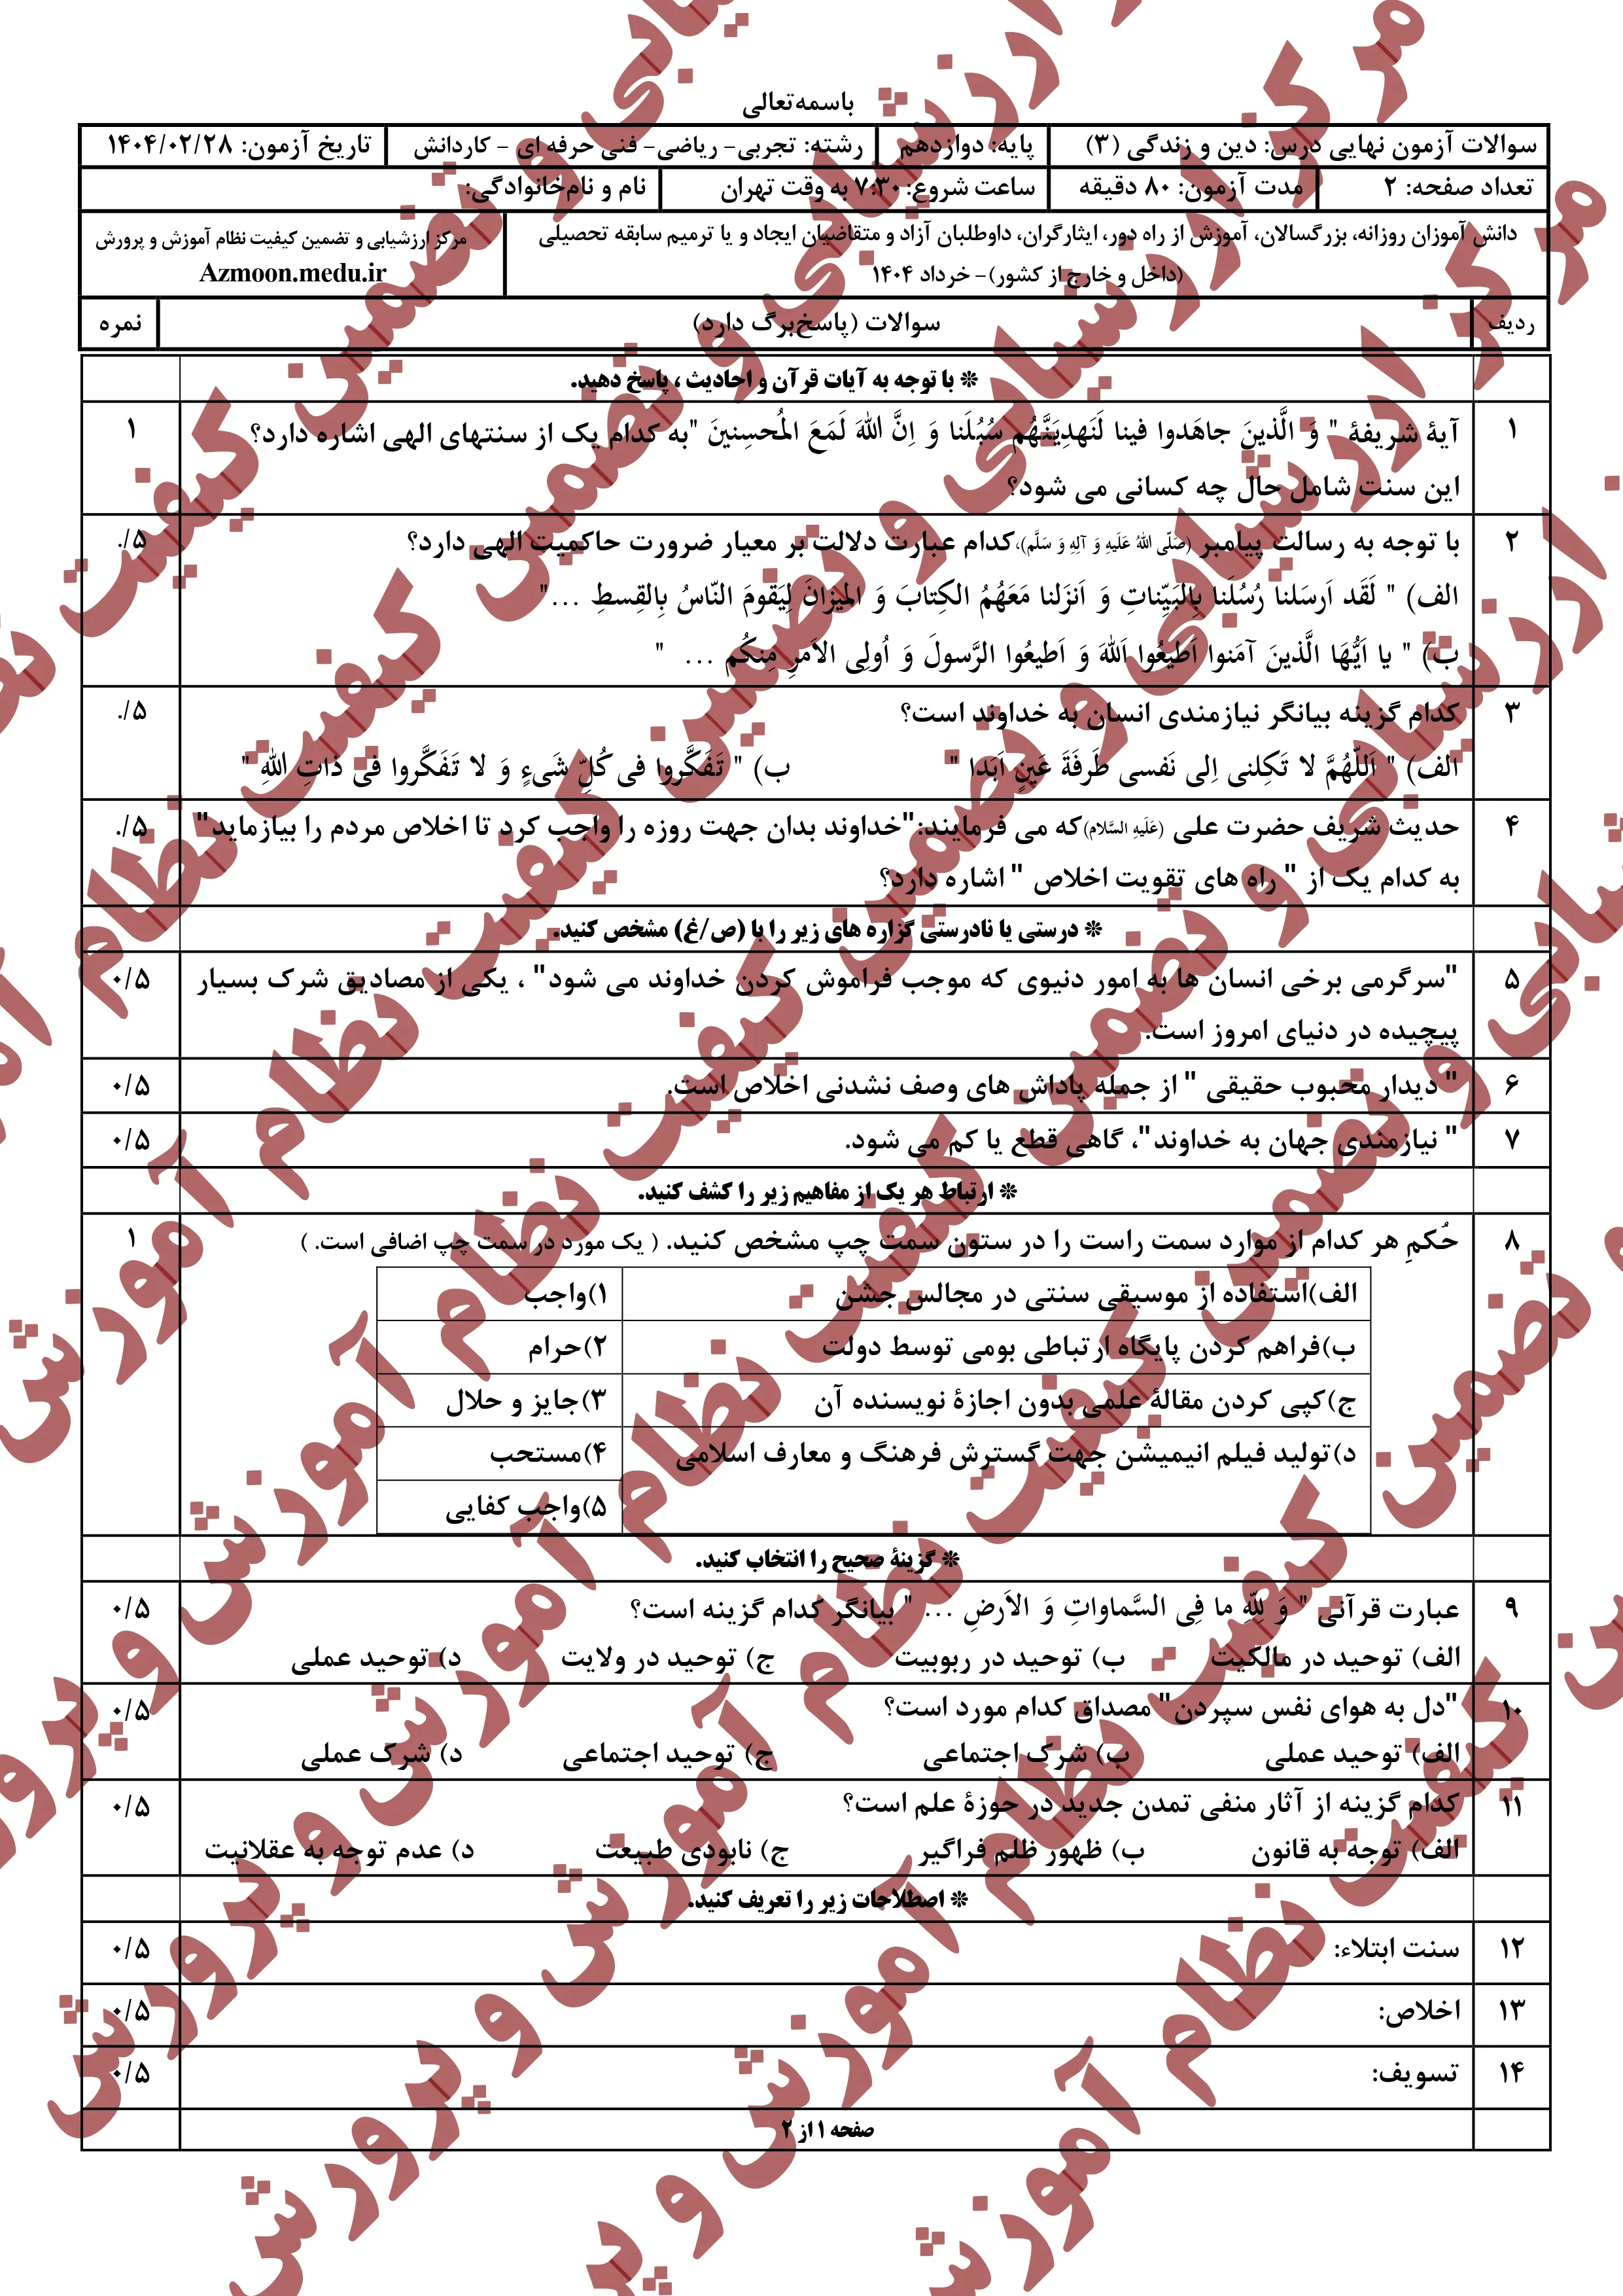 باسمه‌تعالی
سوالات آزمون نهایی درس: دین و زندگی (۳) پایه: دوازدهم رشته: تجربی- ریاضی- فنی حرفه ای - کاردانش تاریخ آزمون: ۱۴۰۴/۰۲/۲۸
تعداد صفحه: ۲ مدت آزمون: ۸۰ دقیقه ساعت شروع: ۷:۳۰ به وقت تهران نام و نام‌خانوادگی:
دانش آموزان روزانه، بزرگسالان، آموزش از راه دور، ایثارگران، داوطلبان آزاد و متقاضیان ایجاد و یا ترمیم سابقه تحصیلی
(داخل و خارج از کشور)- خرداد ۱۴۰۴
مرکز ارزشیابی و تضمین کیفیت نظام آموزش و پرورش
Azmoon.medu.ir
ردیف سوالات (پاسخ‌برگ دارد) نمره
* با توجه به آیات قرآن و احادیث ، پاسخ دهید.
۱ آیهٔ شریفهٔ " وَ الَّذینَ جاهَدوا فینا لَنَهدِیَنَّهُم سُبُلَنا وَ اِنَّ اللهَ لَمَعَ المُحسِنینَ "به کدام یک از سنتهای الهی اشاره دارد؟ ۱
این سنت شامل حال چه کسانی می شود؟
۲ با توجه به رسالت پیامبر (صَلَّی اللهُ عَلَیهِ وَ آلِهِ وَ سَلَّم)،کدام عبارت دلالت بر معیار ضرورت حاکمیت الهی دارد؟ ./۵
الف) " لَقَد اَرسَلنا رُسُلَنا بِالبَیِّناتِ وَ اَنزَلنا مَعَهُمُ الکِتابَ وَ المیزانَ لِیَقومَ النّاسُ بِالقِسطِ ..."
ب) " یا اَیُّهَا الَّذینَ آمَنوا اَطیعُوا اللهَ وَ اَطیعُوا الرَّسولَ وَ اُولِی الاَمرِ مِنکُم ... "
۳ کدام گزینه بیانگر نیازمندی انسان به خداوند است؟ ./۵
الف) " اَللّهُمَّ لا تَکِلنی اِلی نَفسی طَرفَةَ عَینٍ اَبَدا " ب) " تَفَکَّروا فی کُلِّ شَیءٍ وَ لا تَفَکَّروا فی ذاتِ اللهِ "
۴ حدیث شریف حضرت علی (عَلَیهِ السَّلام)که می فرمایند:"خداوند بدان جهت روزه را واجب کرد تا اخلاص مردم را بیازماید" ./۵
به کدام یک از " راه های تقویت اخلاص " اشاره دارد؟
* درستی یا نادرستی گزاره های زیر را با (ص/غ) مشخص کنید.
۵ "سرگرمی برخی انسان ها به امور دنیوی که موجب فراموش کردن خداوند می شود" ، یکی از مصادیق شرک بسیار ۰/۵
پیچیده در دنیای امروز است.
۶ " دیدار محبوب حقیقی " از جمله پاداش های وصف نشدنی اخلاص است. ۰/۵
۷ " نیازمندی جهان به خداوند"، گاهی قطع یا کم می شود. ۰/۵
* ارتباط هر یک از مفاهیم زیر را کشف کنید.
۸ حُکمِ هر کدام از موارد سمت راست را در ستون سمت چپ مشخص کنید. ( یک مورد در سمت چپ اضافی است. ) ۱
الف)استفاده از موسیقی سنتی در مجالس جشن ۱)واجب
ب)فراهم کردن پایگاه ارتباطی بومی توسط دولت ۲)حرام
ج)کپی کردن مقالهٔ علمی بدون اجازهٔ نویسنده آن ۳)جایز و حلال
د)تولید فیلم انیمیشن جهت گسترش فرهنگ و معارف اسلامی ۴)مستحب
۵)واجب کفایی
* گزینهٔ صحیح را انتخاب کنید.
۹ عبارت قرآنی " وَ لِلّهِ ما فِی السَّماواتِ وَ الاَرضِ ... " بیانگر کدام گزینه است؟ ۰/۵
الف) توحید در مالکیت ب) توحید در ربوبیت ج) توحید در ولایت د) توحید عملی
۱۰ "دل به هوای نفس سپردن" مصداق کدام مورد است؟ ۰/۵
الف) توحید عملی ب) شرک اجتماعی ج) توحید اجتماعی د) شرک عملی
۱۱ کدام گزینه از آثار منفی تمدن جدید در حوزهٔ علم است؟ ۰/۵
الف) توجه به قانون ب) ظهور ظلم فراگیر ج) نابودی طبیعت د) عدم توجه به عقلانیت
* اصطلاحات زیر را تعریف کنید.
۱۲ سنت ابتلاء: ۰/۵
۱۳ اخلاص: ۰/۵
۱۴ تسویف: ۰/۵
صفحه ۱ از ۲
مرکز ارزشیابی و تضمین کیفیت نظام آموزش و پرورش